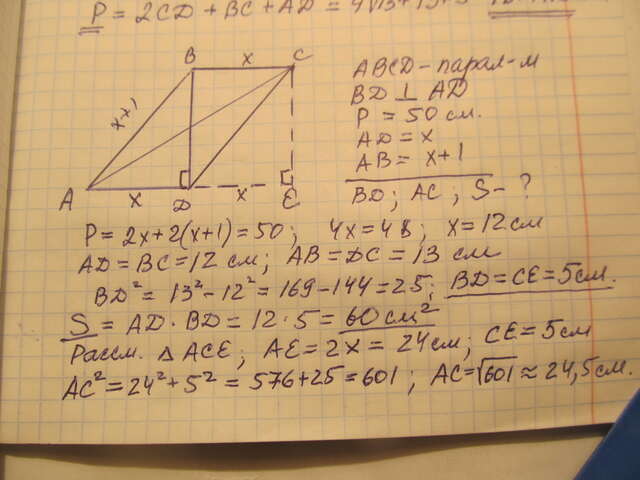 P = 2CD + BC + AD =
ABCD - парал-м
BD ⊥ AD
P = 50 см.
AD = x
AB = x+1
BD; AC; S - ?
B
x
C
x+1
A
x
D
x
E
P = 2x + 2(x+1) = 50; 4x = 48; x = 12 см
AD = BC = 12 см; AB = DC = 13 см
BD² = 13² - 12² = 169 - 144 = 25; BD = CE = 5 см.
S = AD · BD = 12 · 5 = 60 см²
Рассм. △ ACE; AE = 2x = 24 см; CE = 5 см
AC² = 24² + 5² = 576 + 25 = 601; AC = √601 ≈ 24,5 см.